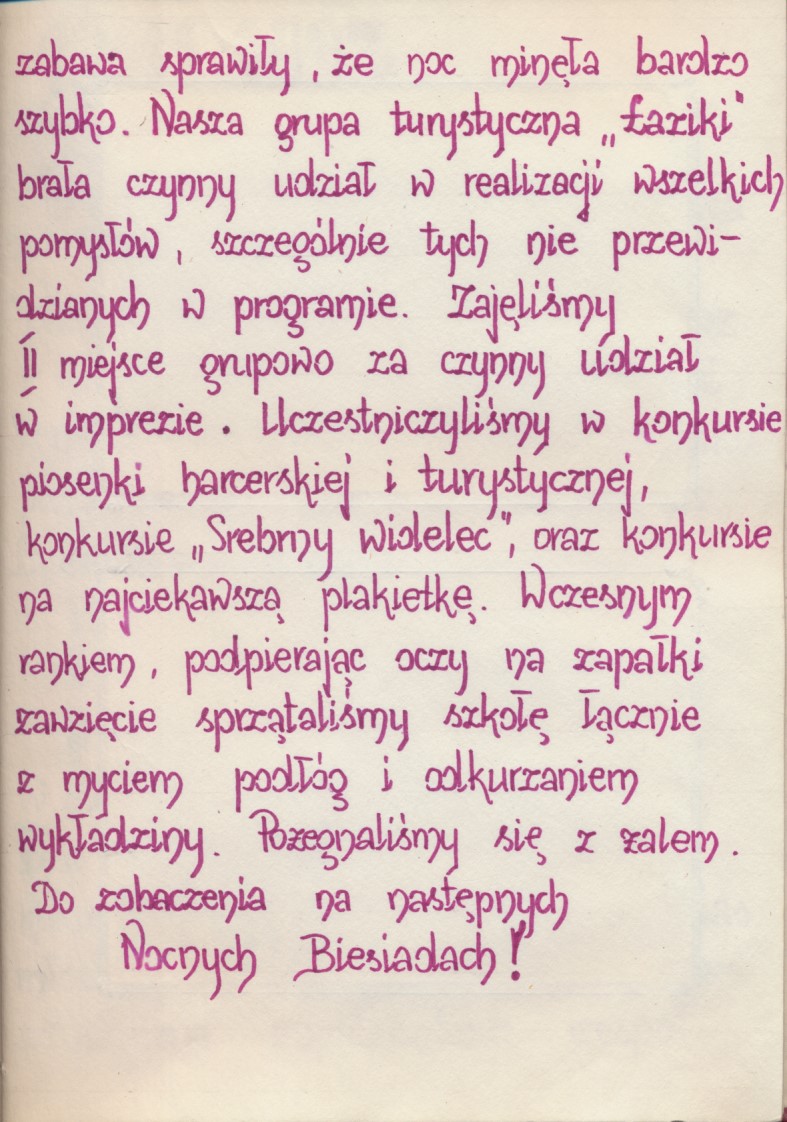 zabawa sprawiły, że noc minęła bardzo
szybko. Nasza grupa turystyczna „Łaziki"
brała czynny udział w realizacji wszelkich
pomysłów, szczególnie tych nie przewi-
dzianych w programie. Zajęliśmy
II miejsce grupowo za czynny udział
w imprezie. Uczestniczyliśmy w konkursie
piosenki harcerskiej i turystycznej,
konkursie „Srebrny widelec", oraz konkursie
na najciekawszą plakietkę. Wczesnym
rankiem, podpierając oczy na zapałki
zawzięcie sprzątaliśmy szkołę łącznie
z myciem podłóg i odkurzaniem
wykładziny. Pożegnaliśmy się z żalem.
Do zobaczenia na następnych
Nocnych Biesiadach!